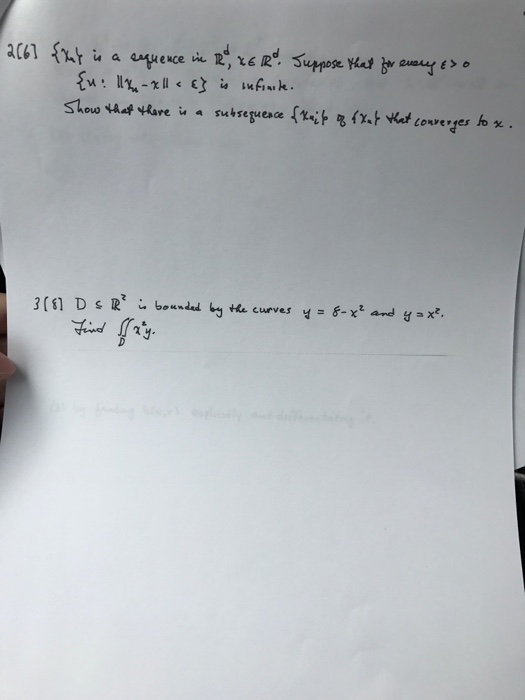 2[6] {xₙ} is a sequence in ℝᵈ, x ∈ ℝᵈ. Suppose that for every ε > 0
{n : ||xₙ - x|| < ε} is infinite.
Show that there is a subsequence {xₙᵢ} of {xₙ} that converges to x.
3[8] D ⊆ ℝ² is bounded by the curves y = 8 - x² and y = x².
Find ∬_D x²y.